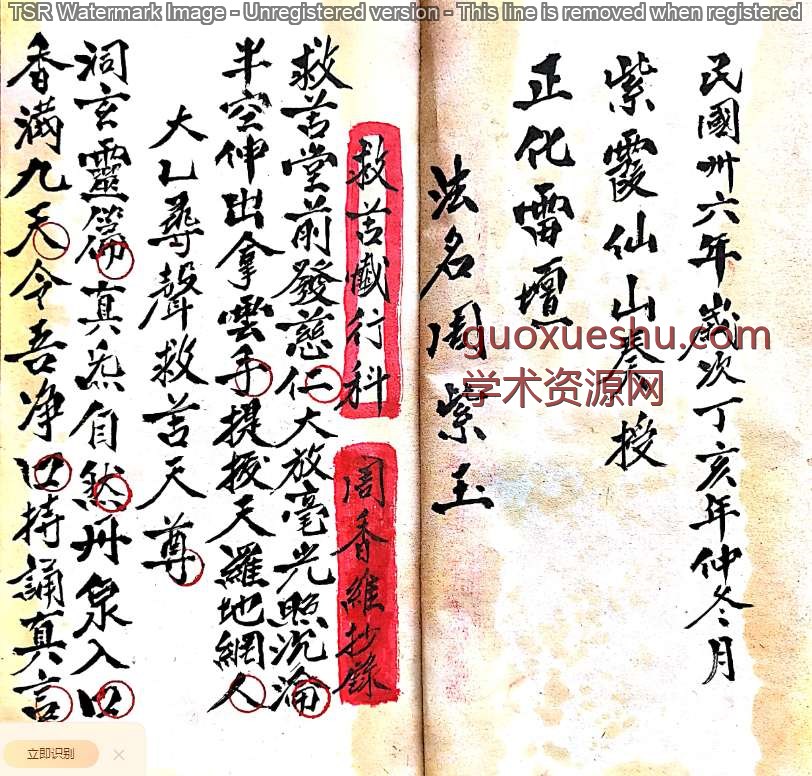 TSR Watermark Image - Unregistered version - This line is removed when registered
民國卅六年歲次丁亥年仲冬月
紫霞仙山奏授
正化雷壇
法名周紫玉
guoxueshu.com
学术资源网
救苦懴行科 周香維抄錄
救苦堂前發慈仁大放毫光照沉淪
半空伸出拿雲手提拔天羅地網人
大乙尋聲救苦天尊
洞玄靈篇真炁自然丹泉入口
香滿九天令吾净口持誦真言
立即识别